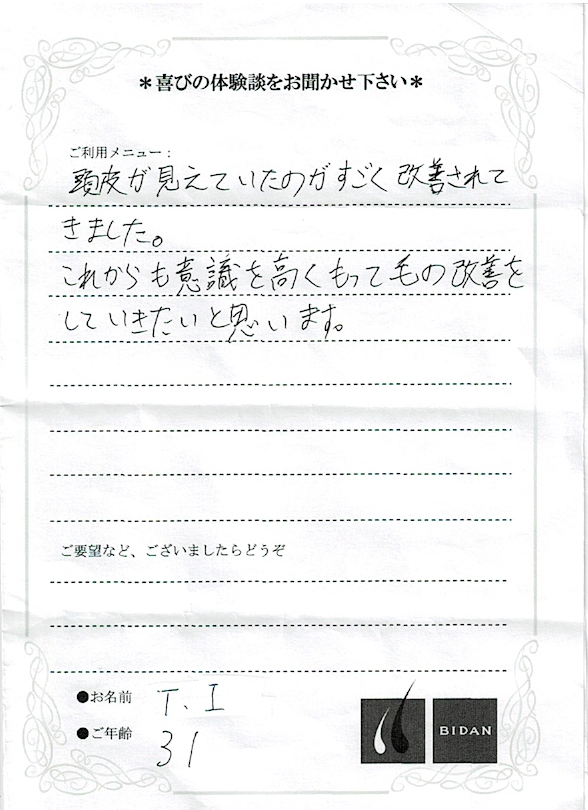 ＊喜びの体験談をお聞かせ下さい＊
ご利用メニュー：
頭皮が見えていたのがすごく改善されて
きました。
これからも意識を高くもって毛の改善を
していきたいと思います。
ご要望など、ございましたらどうぞ
●お名前 T. I
●ご年齢 31
BIDAN